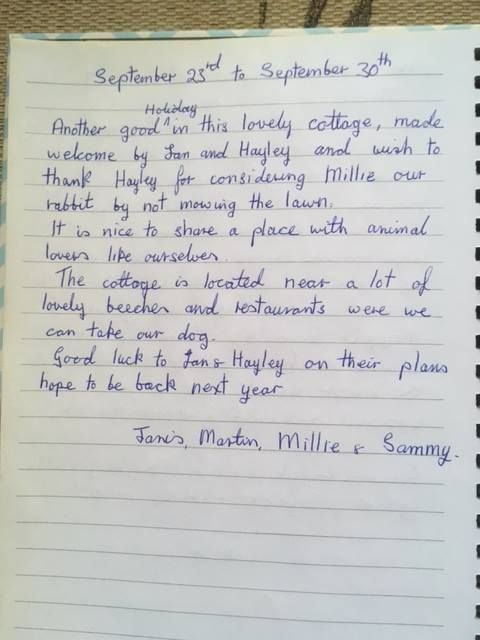 September 23rd to September 30th
Another good ^Holiday in this lovely cottage, made
welcome by Ian and Hayley and wish to
thank Hayley for considering Millie our
rabbit by not mowing the lawn.
It is nice to share a place with animal
lovers like ourselves.
The cottage is located near a lot of
lovely beeches and restaurants were we
can take our dog.
Good luck to Ian & Hayley on their plans
hope to be back next year
Janis, Martin, Millie & Sammy.